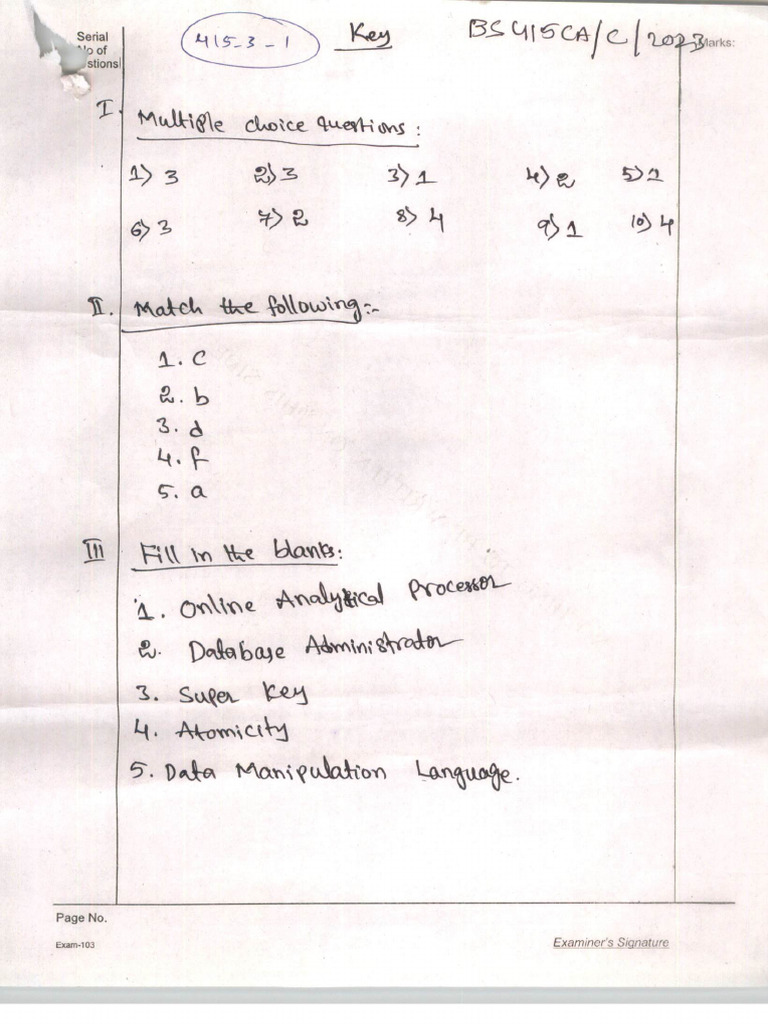 Serial
No of
stions
415-3-1
Key
BS415CA/C/2023
Marks:
I. Multiple choice questions:
1) 3 2) 3 3) 1 4) 2 5) 1
6) 3 7) 2 8) 4 9) 1 10) 4
II. Match the following:-
1. c
2. b
3. d
4. f
5. a
III Fill in the blanks:
1. Online Analytical Processor
2. Database Administrator
3. Super Key
4. Atomicity
5. Data Manipulation Language.
Page No.
Exam-103
Examiner's Signature